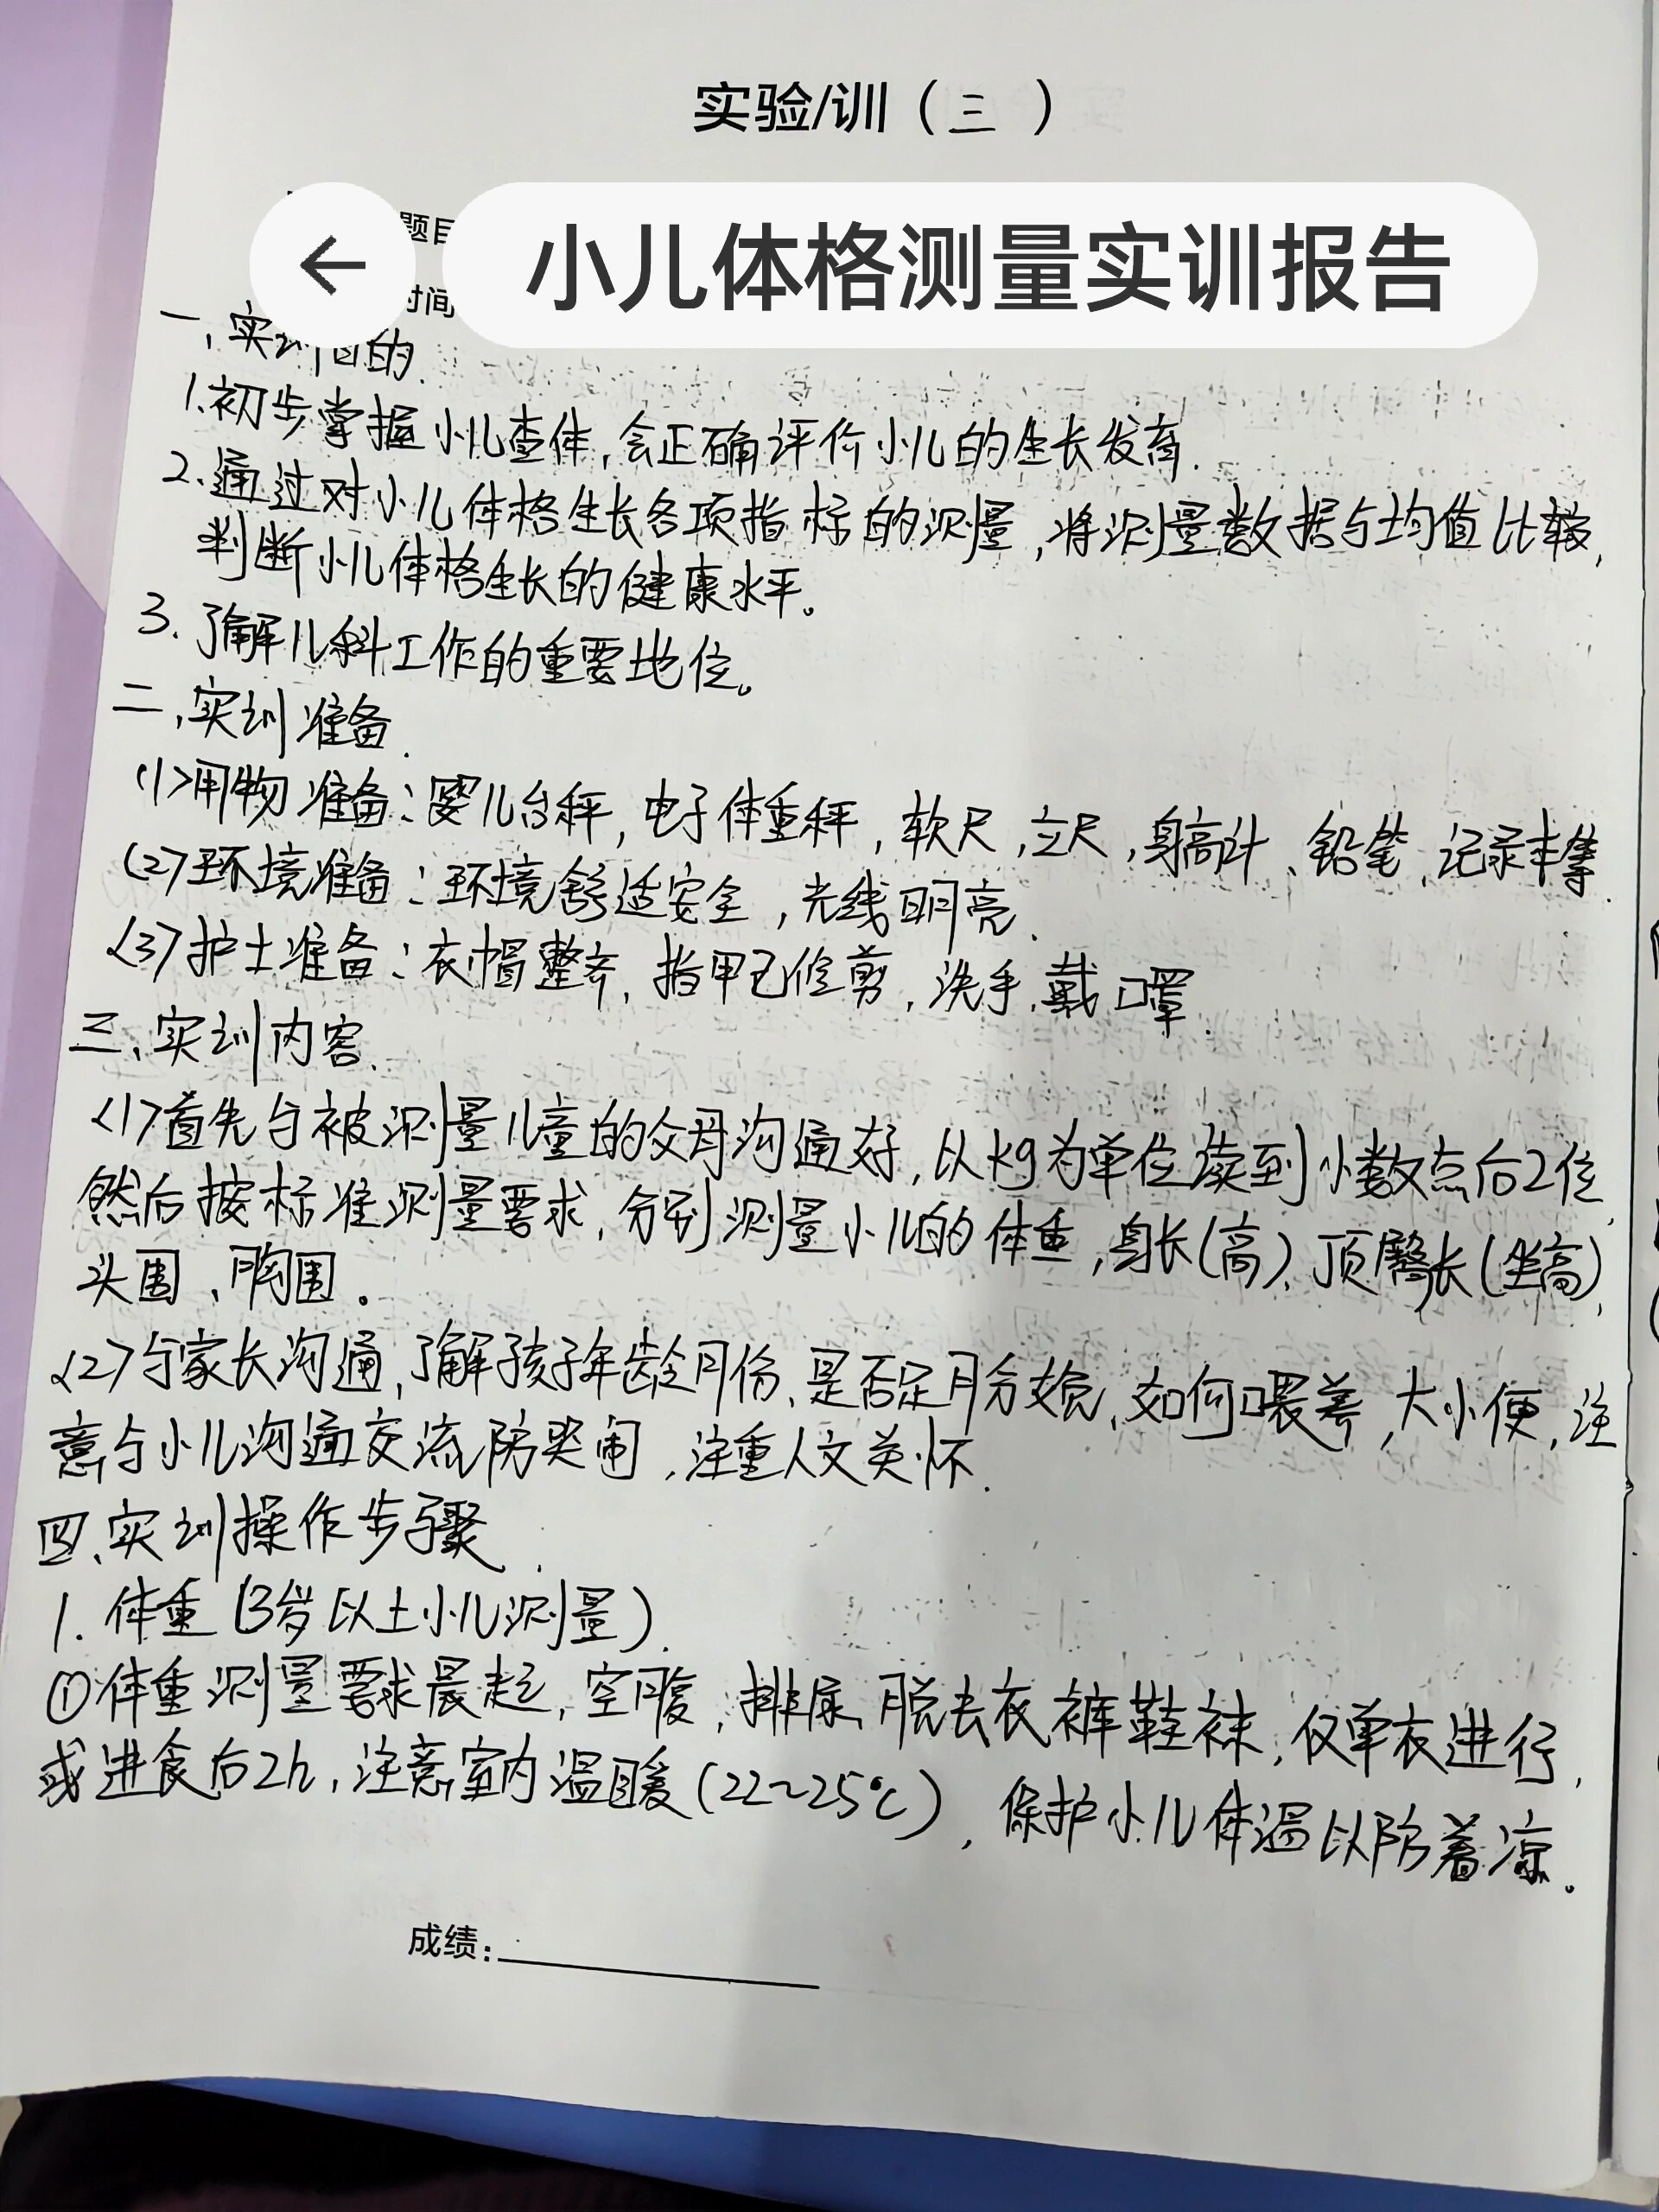 实验/训（三）
题目
← 小儿体格测量实训报告
时间
一、实训目的.
1.初步掌握小儿查体,会正确评价小儿的生长发育.
2.通过对小儿体格生长各项指标的测量,将测量数据与均值比较,
判断小儿体格生长的健康水平。
3.了解儿科工作的重要地位。
二、实训准备.
(1)用物准备:婴儿台秤,电子体重秤,软尺,立尺,身高计、铅笔,记录本等.
(2)环境准备:环境舒适安全,光线明亮.
(3)护士准备:衣帽整齐,指甲已修剪,洗手,戴口罩.
三、实训内容.
(1)首先与被测量儿童的父母沟通好,以kg为单位读到小数点后2位,
然后按标准测量要求,分别测量小儿的体重,身长(高),顶臀长(坐高),
头围、胸围。
(2)与家长沟通,了解孩子年龄月份、是否足月分娩,如何喂养,大小便,注
意与小儿沟通交流防哭闹,注重人文关怀.
四、实训操作步骤.
1.体重(3岁以上小儿测量).
①体重测量要求晨起,空腹,排尿,脱去衣裤鞋袜,仅单衣进行,
或进食后2h,注意室内温暖(22~25℃),保护小儿体温以防着凉。
成绩: